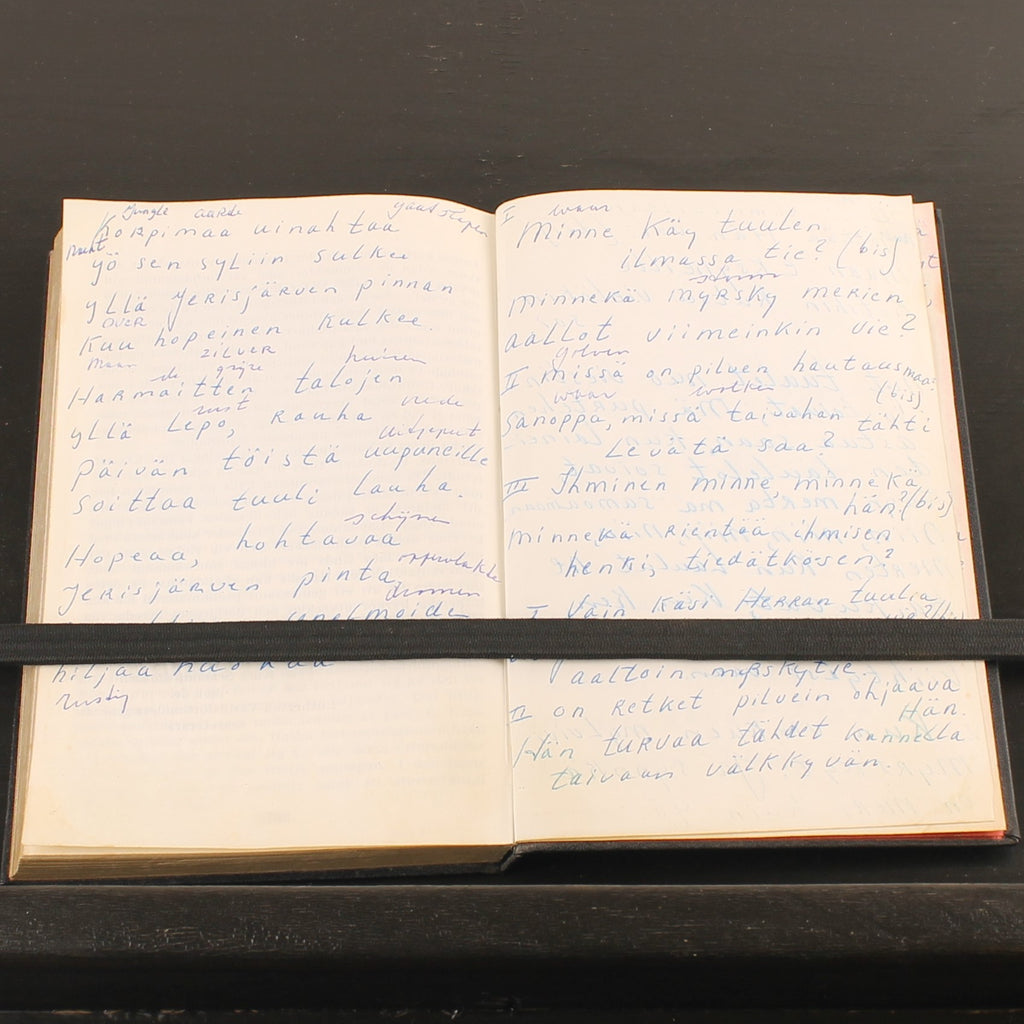 Jungle aarde gaat slapen
Korpimaa uinahtaa
Nacht
yö sen syliin sulkee
yllä Jerisjärven pinnan
over
Kuu hopeinen kulkee.
Maan zilver
de grijze huizen
Harmaitten talojen
rust vrede
yllä Lepo, Rauha
uitgeput
päivän töistä uupuneille
soittaa tuuli lauha.
schijnen
Hopeaa, hohtavaa
oppervlakte
Jerisjärven pinta,
dromen
unelmoide
hiljaa
rustig
I waar
Minne Käy tuulen
ilmassa tie? (bis)
storm
minnekä myrsky merien
aallot viimeinkin vie?
golven
II missä on pilven hautausmaa?
(bis)
waar wolken
Sanoppa, missä taivahan tähti
Levätä saa?
III Ihminen minne, minnekä
hän? (bis)
minnekä rientää ihmisen
henki, tiedätkösen?
I Vain Käsi Herran tuulia
aaltoin myrskytie.
II on Retket pilvein ohjaava
Hän.
Hän turvaa tähdet Kannella
taivaan välkkyvän.